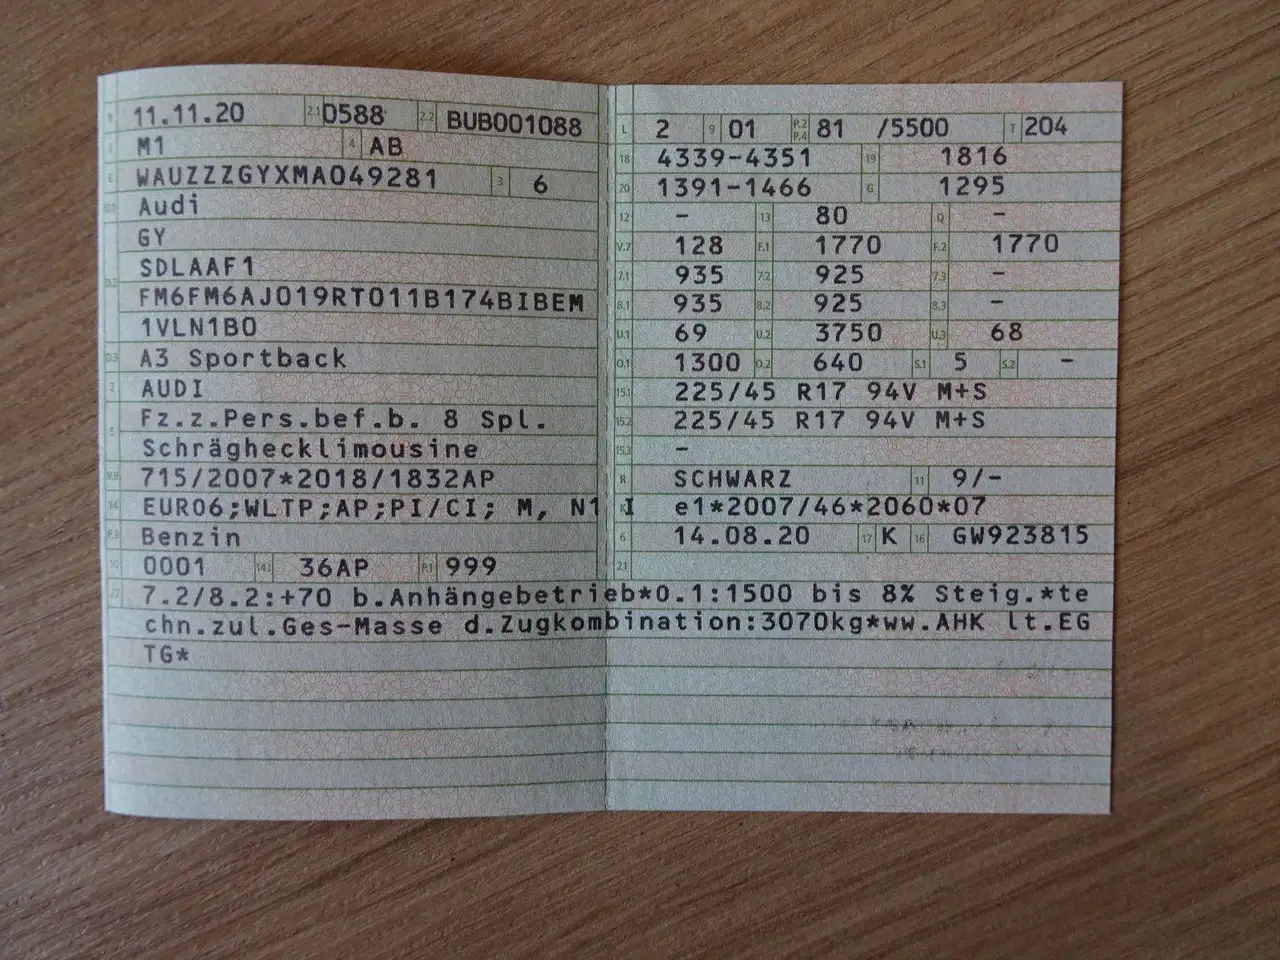 B 11.11.20 2.1 0588 2.2 BUB001088
J M1 4 AB
E WAUZZZGYXMA049281 3 6
D.1 Audi
GY
D.2 SDLAAF1
FM6FM6AJ019RT011B174BIBEM
1VLN1B0
D.3 A3 Sportback
2 AUDI
5 Fz.z.Pers.bef.b. 8 Spl.
Schrägheckli­mousine
V.9 715/2007*2018/1832AP
14 EURO6;WLTP;AP;PI/CI; M, N1 I
P.3 Benzin
10 0001 14.1 36AP P.1 999
L 2 9 01 P.2 P.4 81 /5500 T 204
18 4339-4351 19 1816
20 1391-1466 G 1295
12 - 13 80 Q -
V.7 128 F.1 1770 F.2 1770
7.1 935 7.2 925 7.3 -
8.1 935 8.2 925 8.3 -
U.1 69 U.2 3750 U.3 68
O.1 1300 O.2 640 S.1 5 S.2 -
15.1 225/45 R17 94V M+S
15.2 225/45 R17 94V M+S
15.3 -
R SCHWARZ 11 9/-
K e1*2007/46*2060*07
6 14.08.20 17 K 16 GW923815
21
22 7.2/8.2:+70 b.Anhängebetrieb*O.1:1500 bis 8% Steig.*te
chn.zul.Ges-Masse d.Zugkombination:3070kg*ww.AHK lt.EG
TG*